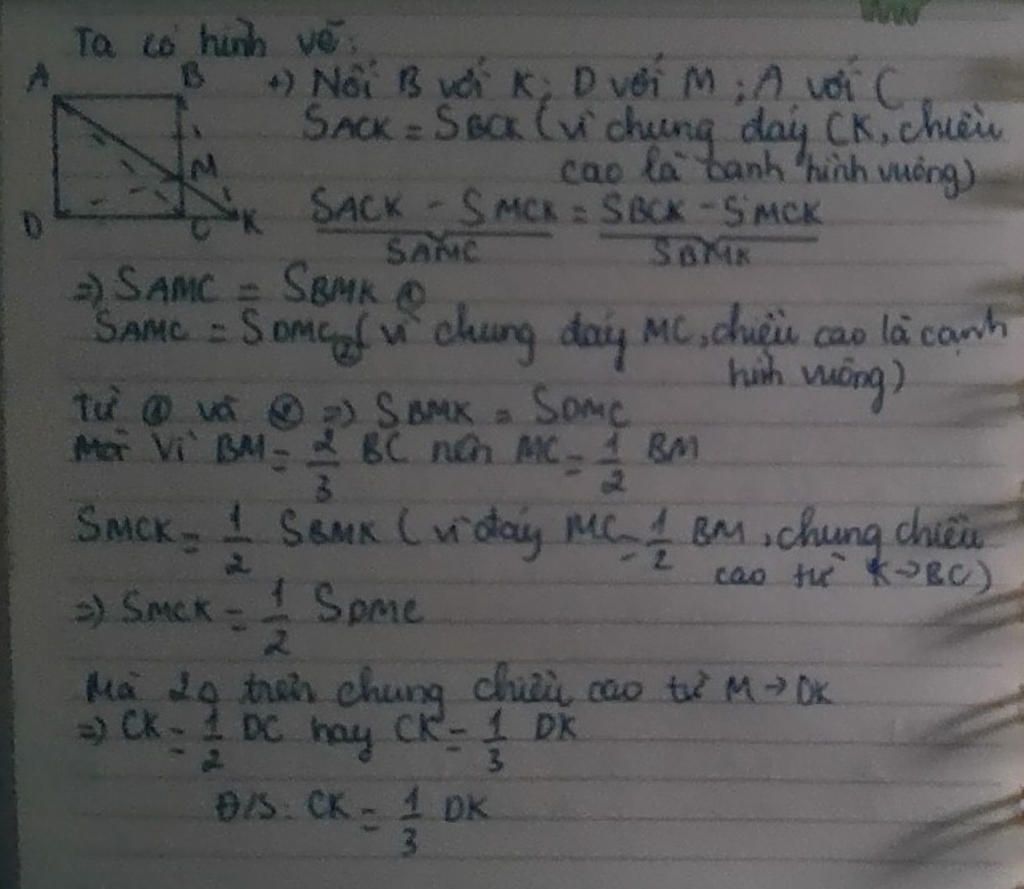 Ta có hình vẽ:
A B D C K M
+) Nối B với K; D với M; A với C
SACK = SBCK (vì chung đáy CK, chiều
cao là cạnh hình vuông)
SACK - SMCK = SBCK - SMCK
SAMC SBMK
=> SAMC = SBMK ①
SAMC = SDMC ② (vì chung đáy MC, chiều cao là cạnh
hình vuông)
Từ ① và ② => SBMK = SDMC
Vì BM = 2/3 BC nên MC = 1/2 BM
SMCK = 1/2 SBMK (vì đáy MC = 1/2 BM, chung chiều
cao từ K->BC)
=> SMCK = 1/2 SDMC
Mà 2 trên chung chiều cao từ M -> DK
=> CK = 1/2 DC hay CK = 1/3 DK
Đ/S: CK = 1/3 DK